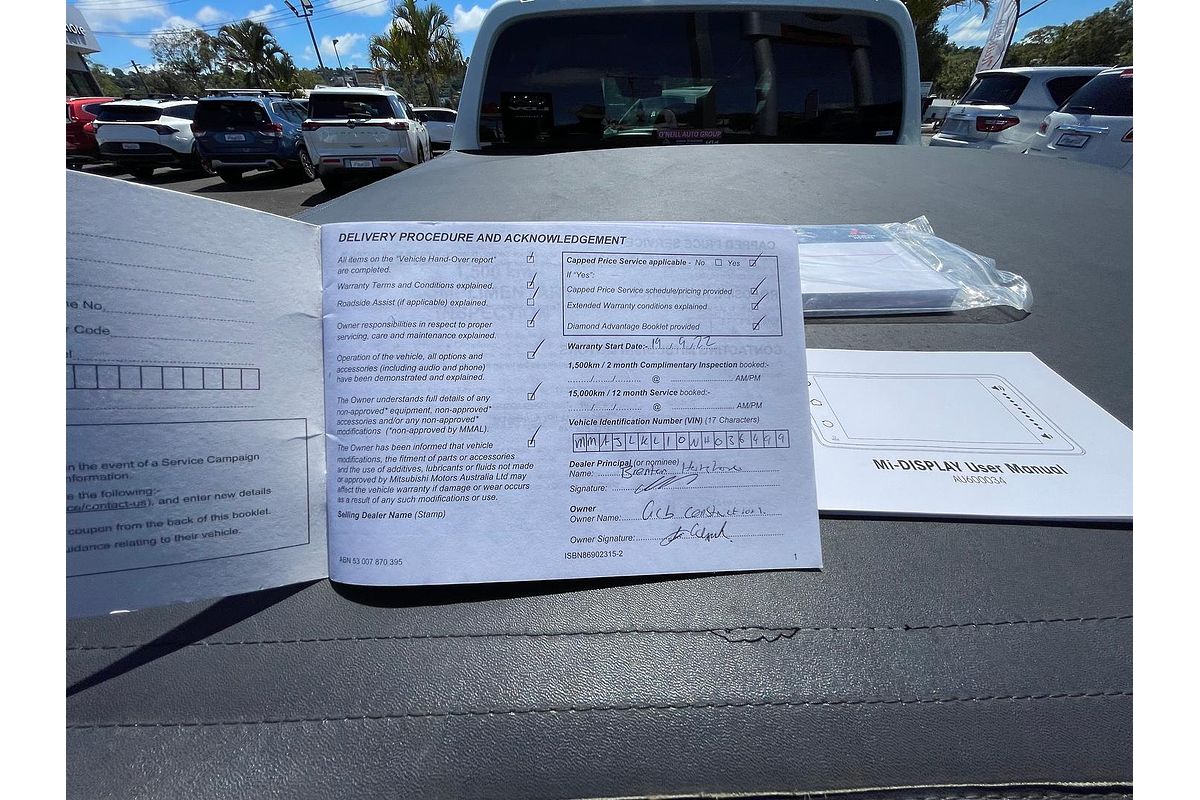 O'NEILL AUTO GROUP
ne No.
r Code
n the event of a Service Campaign
nformation.
e the following:-
ce/contact-us), and enter new details
coupon from the back of this booklet.
uidance relating to their vehicle.
DELIVERY PROCEDURE AND ACKNOWLEDGEMENT
All items on the "Vehicle Hand-Over report"
are completed.
Warranty Terms and Conditions explained.
Roadside Assist (if applicable) explained.
Owner responsibilities in respect to proper
servicing, care and maintenance explained.
Operation of the vehicle, all options and
accessories (including audio and phone)
have been demonstrated and explained.
The Owner understands full details of any
non-approved* equipment, non-approved*
accessories and/or any non-approved*
modifications (*non-approved by MMAL).
The Owner has been informed that vehicle
modifications, the fitment of parts or accessories
and the use of additives, lubricants or fluids not made
or approved by Mitsubishi Motors Australia Ltd may
affect the vehicle warranty if damage or wear occurs
as a result of any such modifications or use.
Selling Dealer Name (Stamp)
ABN 53 007 870 395
Capped Price Service applicable - No Yes
If "Yes":
Capped Price Service schedule/pricing provided
Extended Warranty conditions explained
Diamond Advantage Booklet provided
Warranty Start Date:- 19.9.22
1,500km / 2 month Complimentary Inspection booked:-
......./....../......... @ ........................ AM/PM
15,000km / 12 month Service booked:-
......./....../......... @ ........................ AM/PM
Vehicle Identification Number (VIN) (17 Characters)
MMAJLKL10NH036499
Dealer Principal (or nominee)
Name:
Signature:
Owner
Owner Name: acb constructions.
Owner Signature:
ISBN86902315-2
1
Mi-DISPLAY User Manual
AU600034